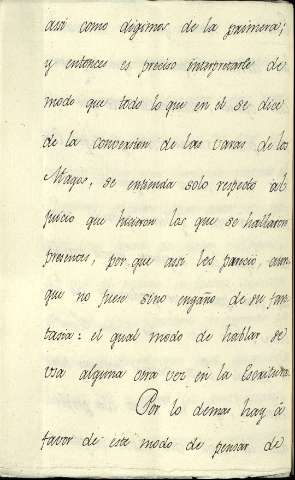 asi como digimos de la primera;
y entonces es preciso interpretarle de
modo que todo lo que en el se dice
de la conversion de las varas de los
Magos, se entienda solo respecto al
juicio que hicieron los que se hallaron
presentes, por que asi les pareció, aun
que no fuese sino engaño de su fan
tasia: el qual modo de hablar se
usa alguna otra vez en la Escritura.
Por lo demas hay á
favor de este modo de pensar de